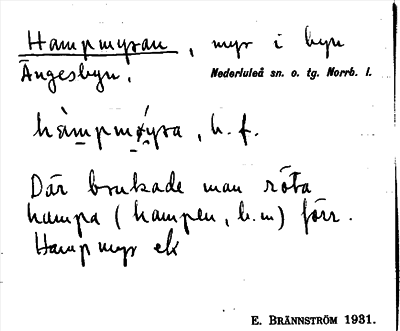 Hampmyran, myr i byn
Ängesbyn.
Nederluleå sn. o. tg. Norrb. l.
hàmpmøýra, b. f.
Där brukade man röta
hampa (hampen, b. m) förr.
Hampmyr ek
E. BRÄNNSTRÖM 1931.